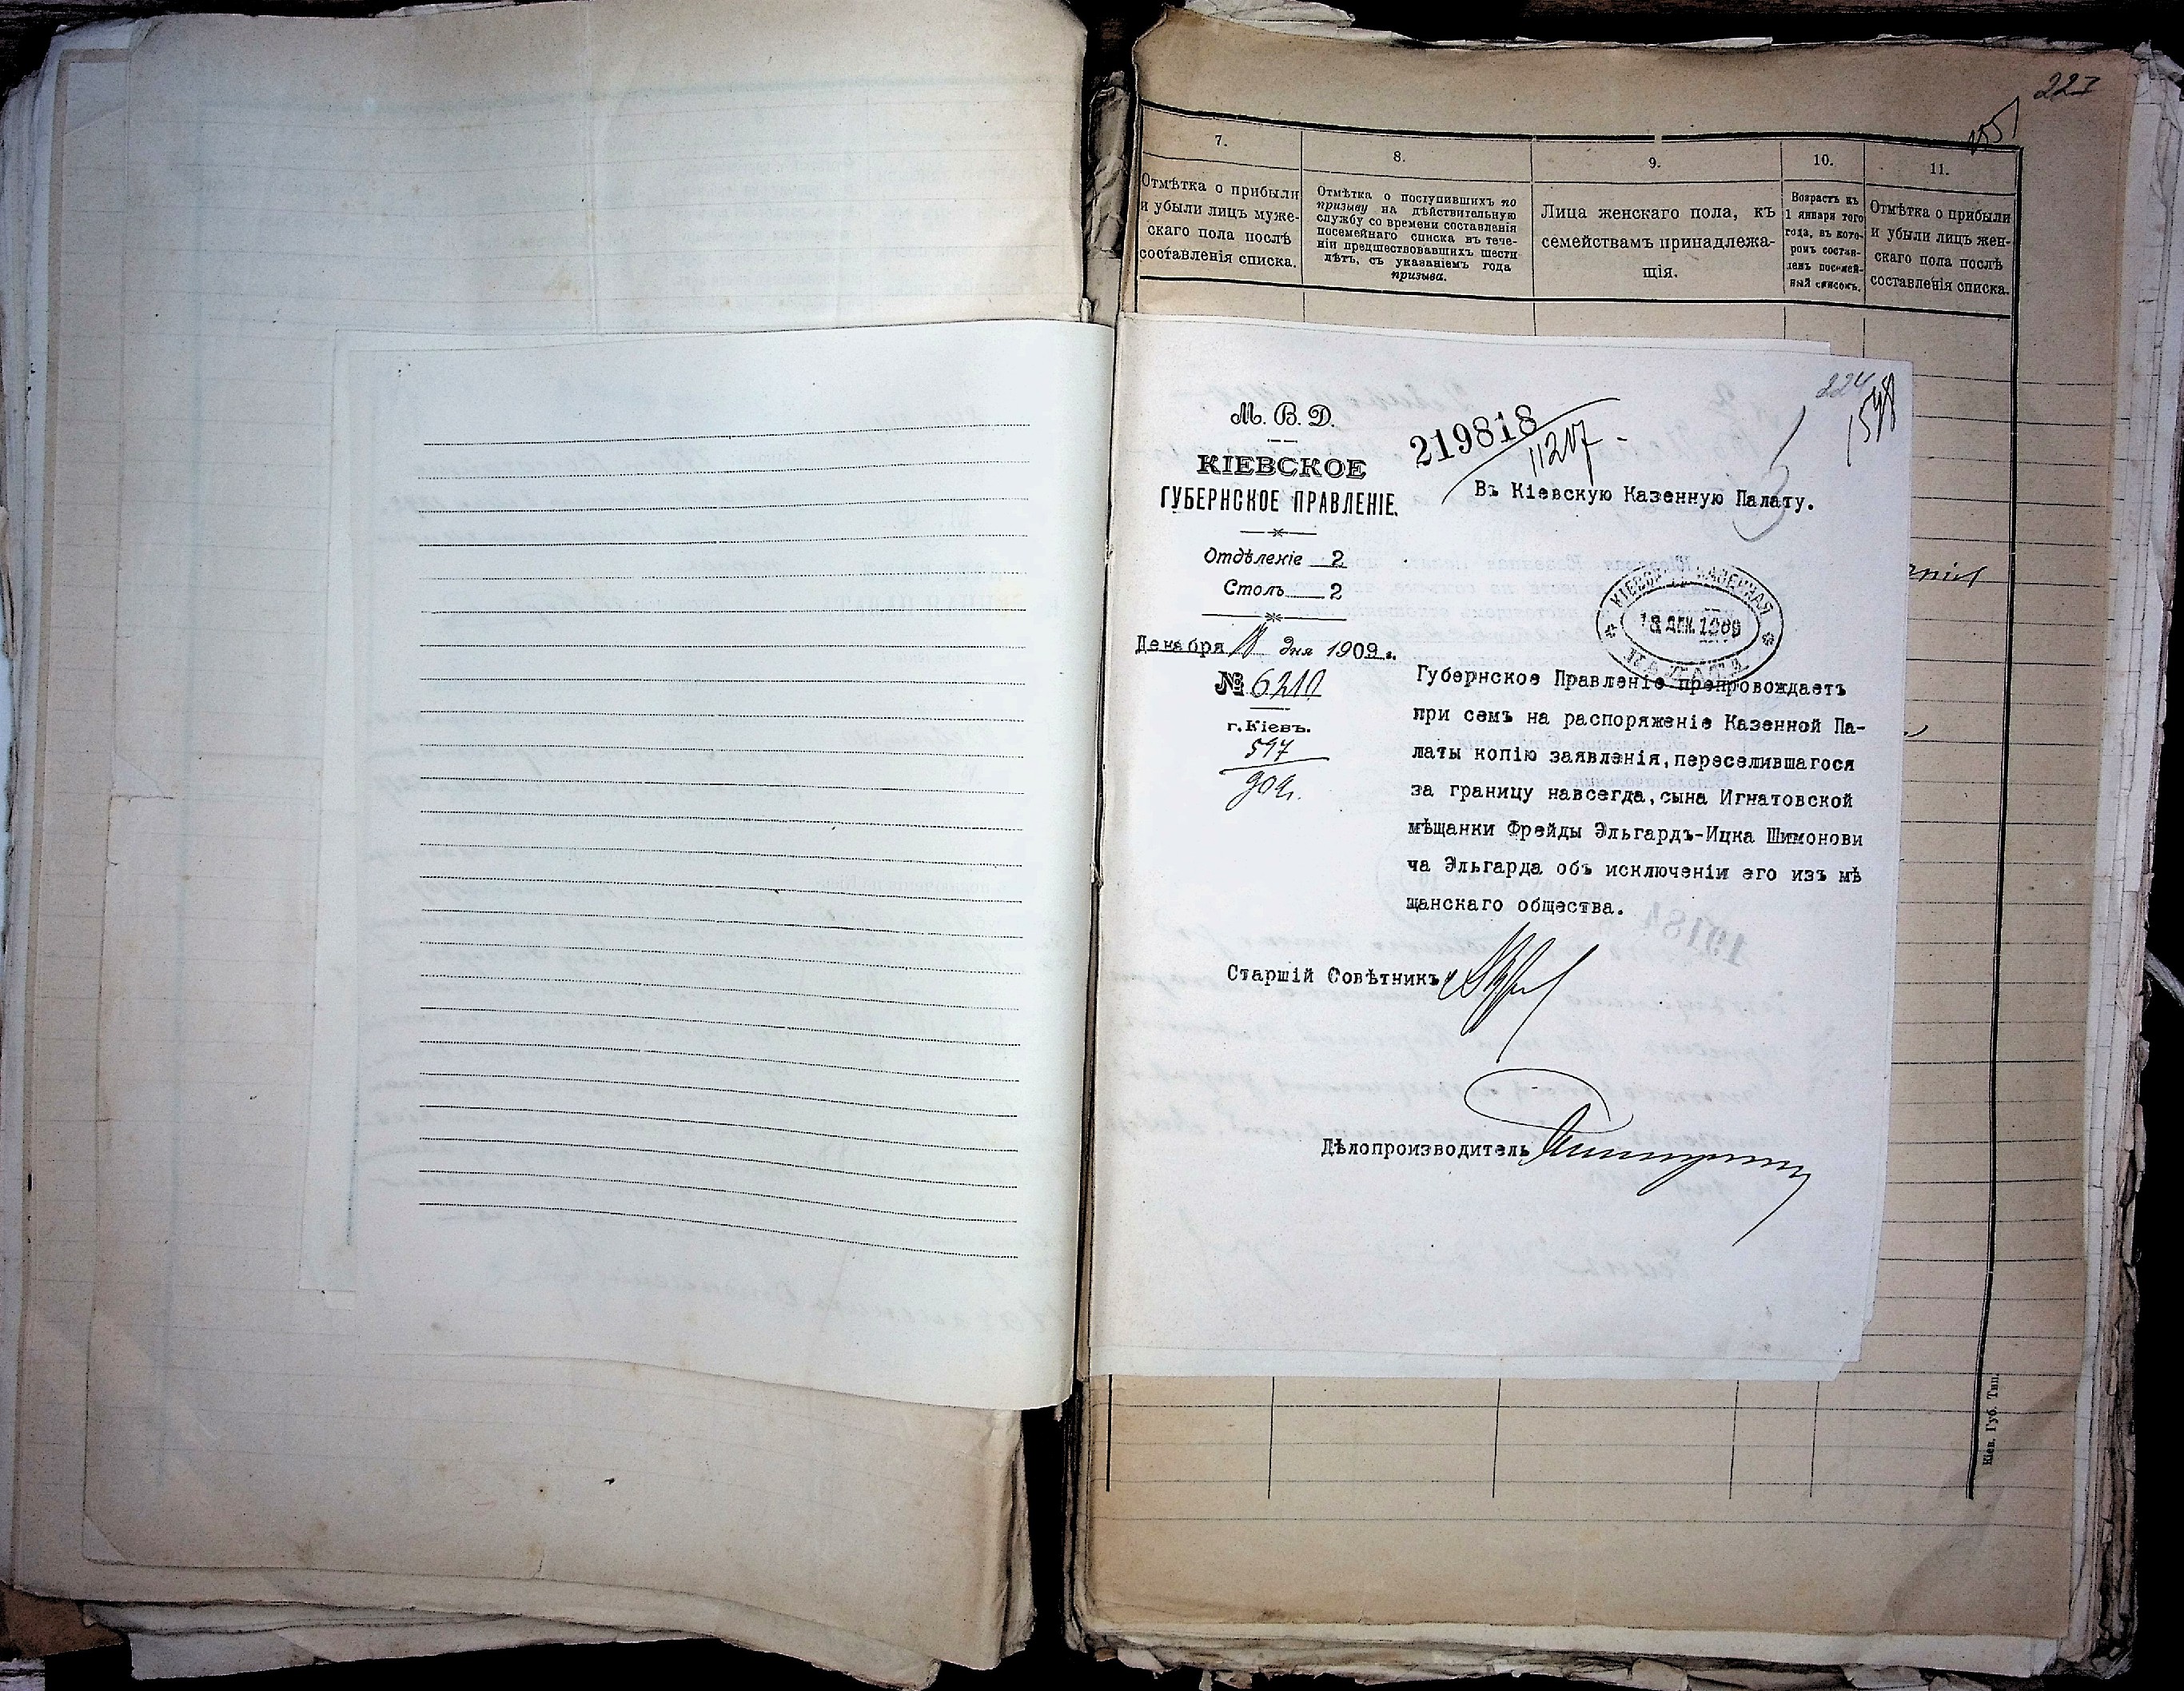 227
7.
Отмѣтка о прибыли
и убыли лицъ муже-
скаго пола послѣ
составленія списка.
8.
Отмѣтка о поступившихъ по
призыву на дѣйствительную
службу со времени составленія
посемейнаго списка въ тече-
ніи предшествовавшихъ шести
лѣтъ, съ указаніемъ года
призыва.
9.
Лица женскаго пола, къ
семействамъ принадлежа-
щія.
10.
Возрастъ къ
1 января того
года, въ кото-
ромъ состав-
ленъ посемей-
ный списокъ.
11.
Отмѣтка о прибыли
и убыли лицъ жен-
скаго пола послѣ
составленія списка.
224
М. В. Д.
КІЕВСКОЕ
ГУБЕРНСКОЕ ПРАВЛЕНІЕ.
Отдѣленіе 2
Столъ 2
Декабря 11 дня 1909 г.
№ 6210
г. Кіевъ.
597
909.
219818
11217
Въ Кіевскую Казенную Палату.
КІЕВСКАЯ КАЗЕННАЯ
18 ДЕК. 1909
ПАЛАТА
Губернское Правленіе препровождаетъ
при семъ на распоряженіе Казенной Па-
латы копію заявленія, переселившагося
за границу навсегда, сына Игнатовской
мѣщанки Фрейды Эльгардъ-Ицка Шимонови
ча Эльгарда объ исключеніи его изъ мѣ
щанскаго общества.
Старшій Совѣтникъ
Дѣлопроизводитель
Кіев. Губ. Тип.